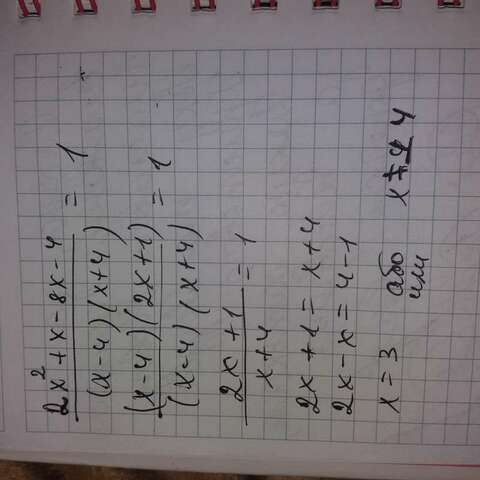 2x² + x - 8x - 4 / (x-4)(x+4) = 1
(x-4)(2x+1) / (x-4)(x+4) = 1
2x+1 / x+4 = 1
2x+1 = x+4
2x-x = 4-1
x = 3 або
или